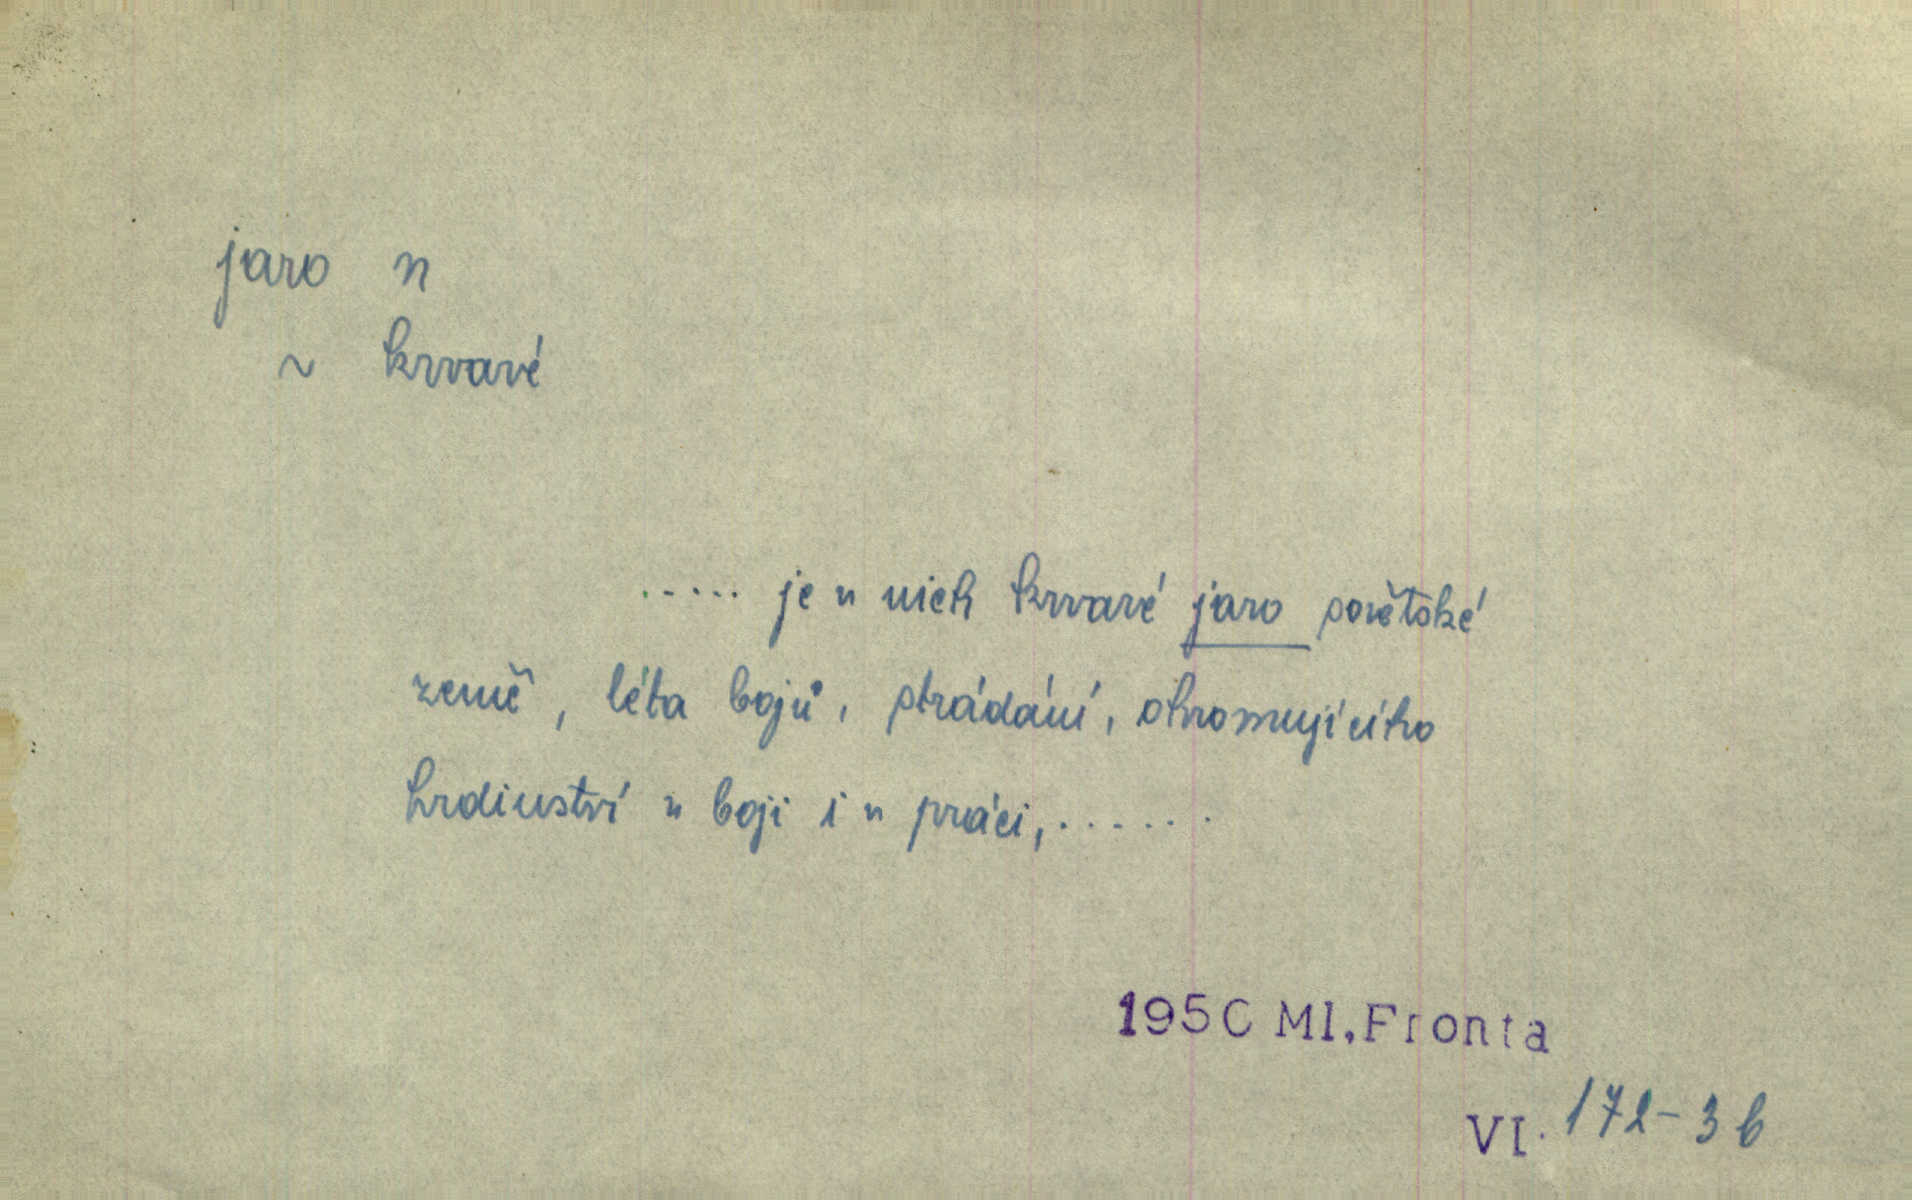 jaro n
~ krvavé
..... je v nich krvavé jaro sovětské
země, léta bojů, strádání, ohromujícího
hrdinství v boji i v práci,......
1950 Ml.Fronta
VI. 172-3b